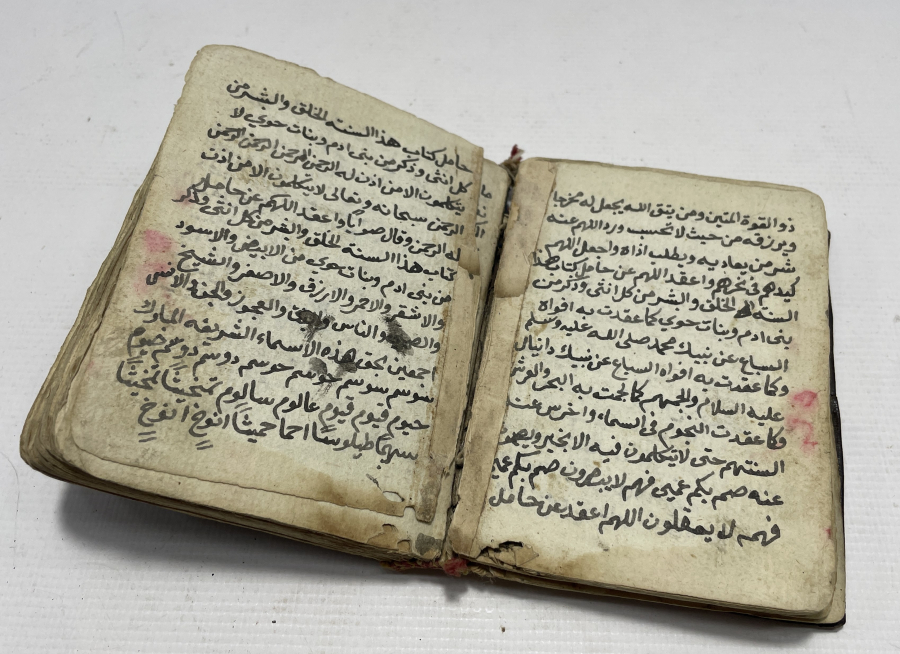 ذو القوة المتين ومن يتق الله يجعل له مخرجا
ويرزقه من حيث لا تحتسب ورد اللهم عنه
شر من يعاديه ويطلب اذاه واجعل اللهم
كيدهم في نحرهم واعقد اللهم عن حامل كتاب هذا
السنة الخلق والبشر من كل انثى وذكر من
بنى ادم وبنات حوى كما عقدت به افواه
السباع عن نبيك محمد صلى الله عليه وسلم
وكما عقدت به افواه السباع عن نبيك دانيال
عليه السلام والجمهم كما لجمت به البحر
فكما عقدت النجوم في السماء واخرس عنه
السنتهم حتى لا يتكلمون فيه الا بخير
عنه صم بكم عمي فهم لا يبصرون صم بكم
فهم لا يعقلون اللهم اعقد عن حامل
حامل كتاب هذا السنة الخلق والبشر من
كل انثى وذكر من بنى ادم وبنات حوى لا
يتكلمون الا من اذن له الرحمن الرحمن الرحمن الرحمن
الرحمن سبحانه وتعالى لا يتكلمون الا من اذن
له الرحمن وقال صوابا واعقد اللهم عن حامل
كتاب هذا السنة الخلق والبشر من كل انثى وذكر
من بنى ادم وبنات حوى من الابيض والاسود
والاشقر والاحمر والازرق والاصفر والشيخ
والناس والعجوز والجن والانس
اجمعين بحق هذه الاسماء الشريفه المباركه
سوسم سوسم حوسم حوسم دوسم دوسم
حيوم قيوم قيوم عالوم سالوم
انوخ انوخ